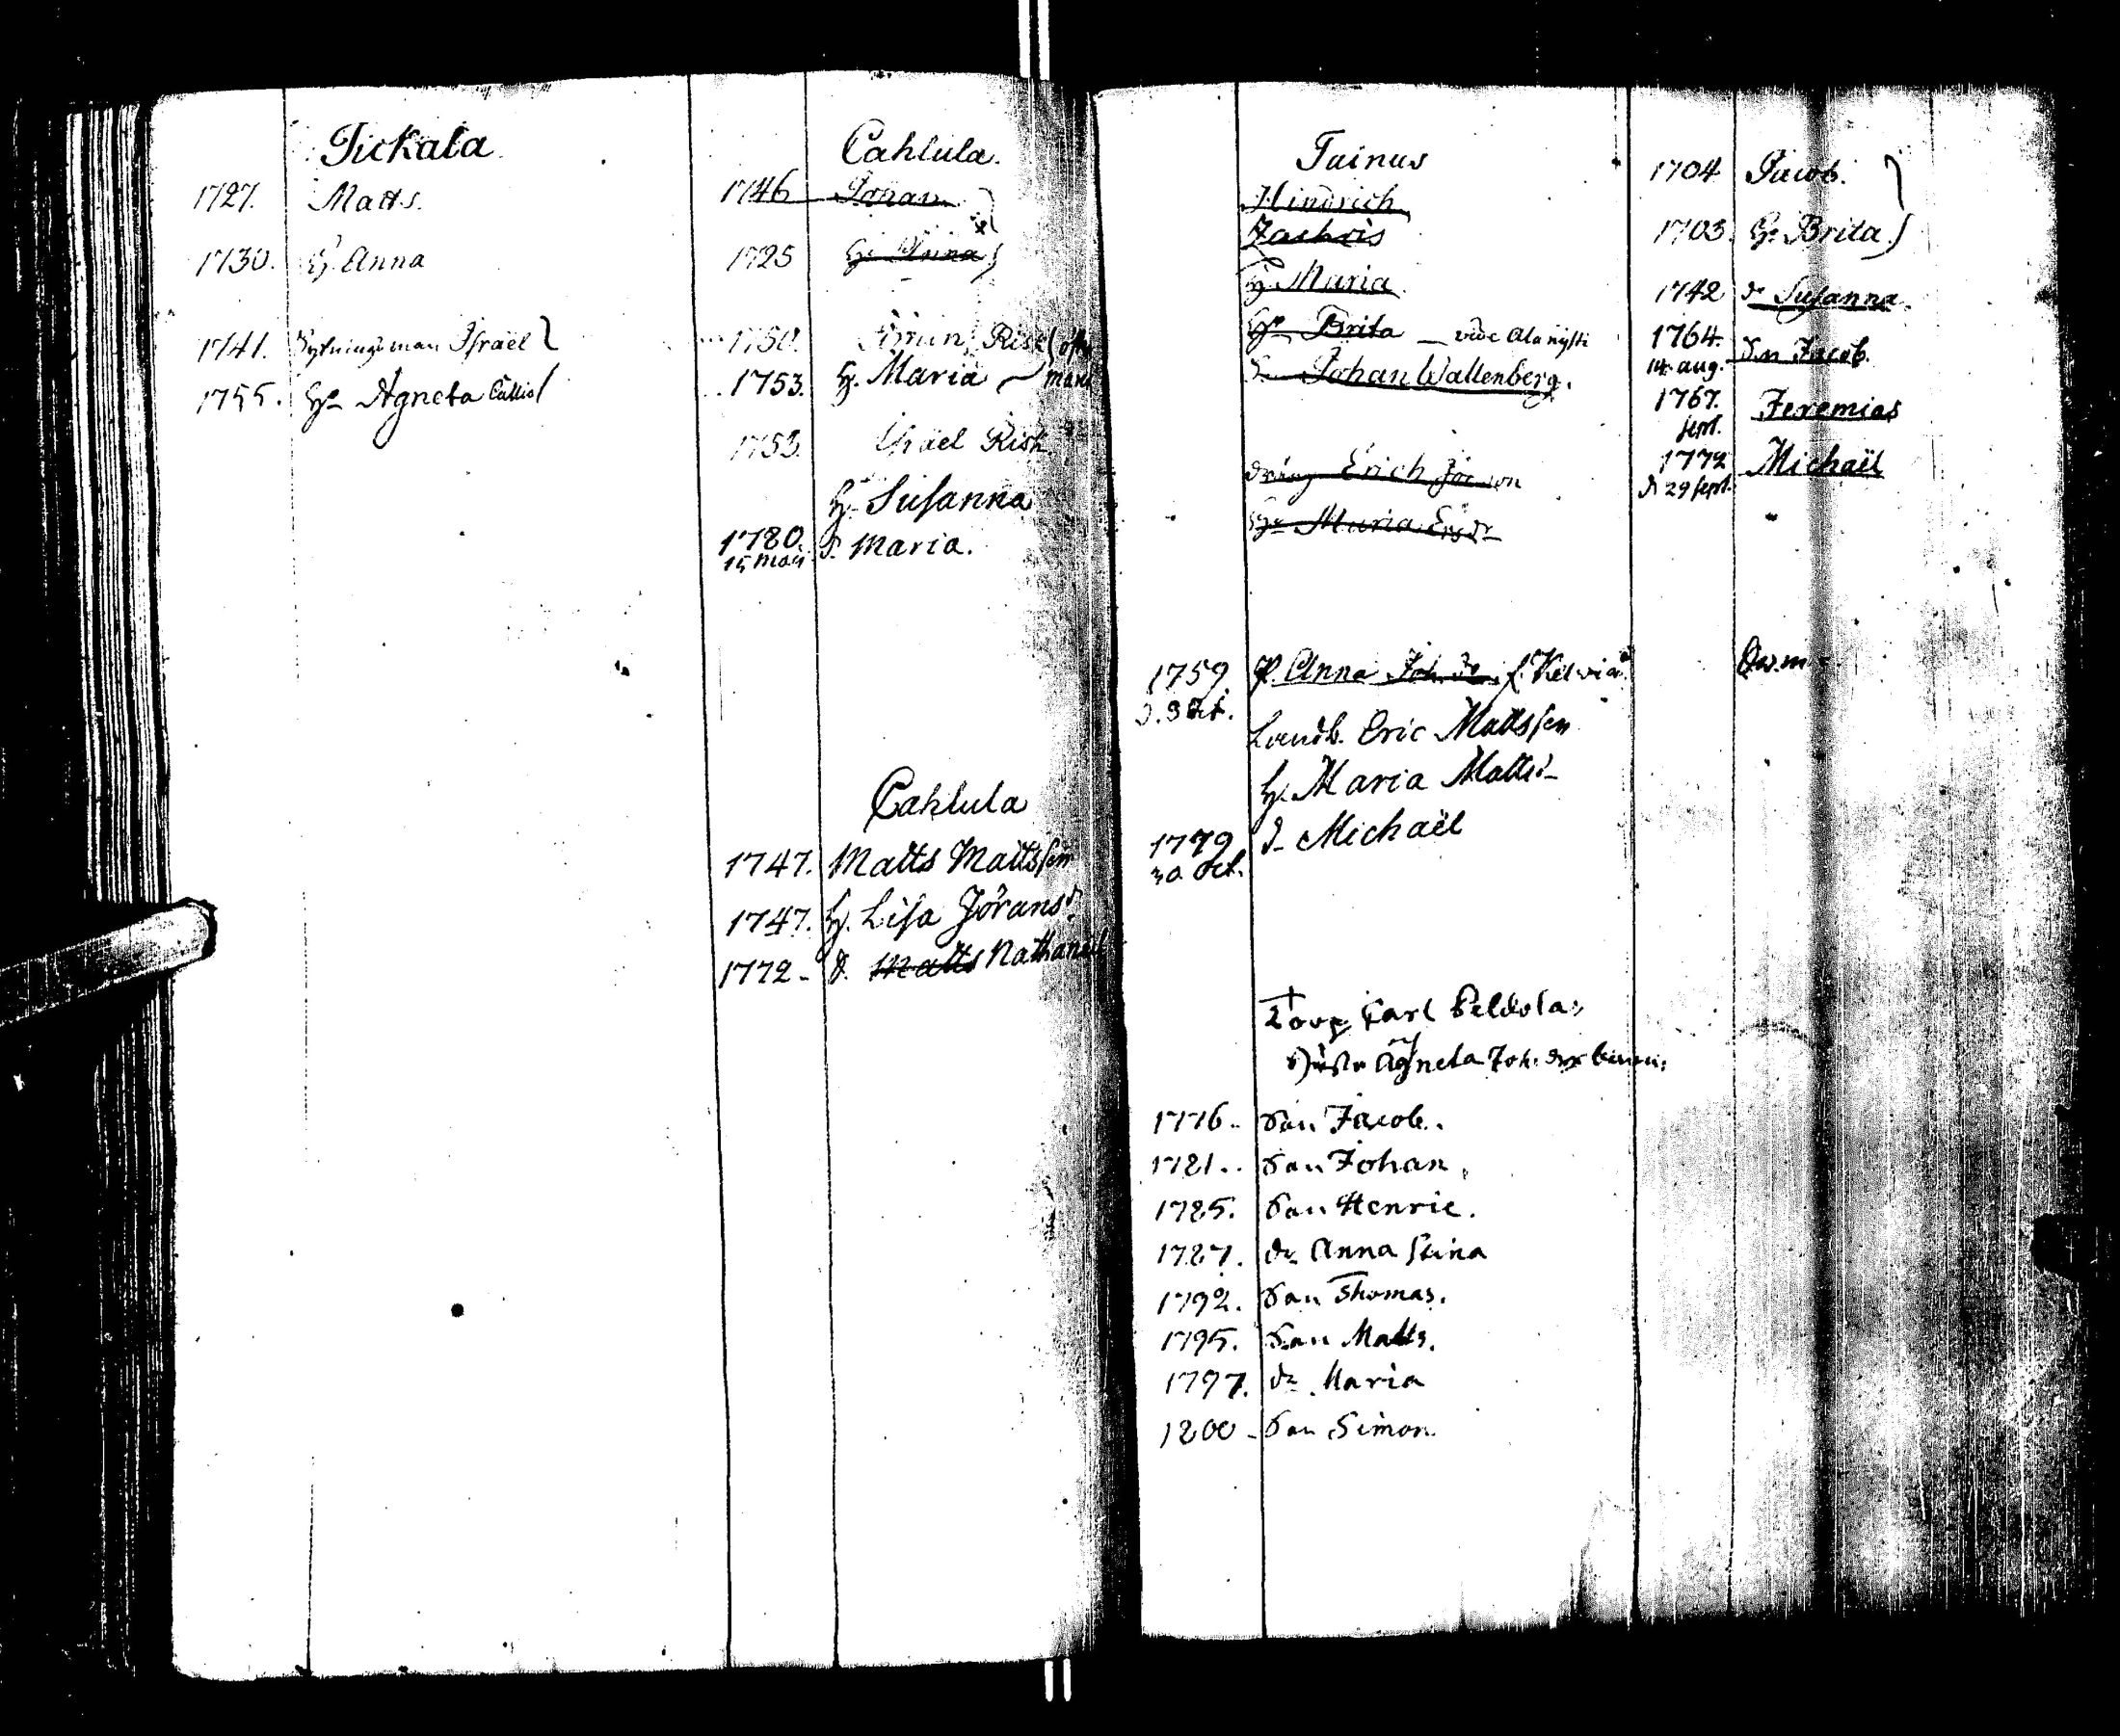 Tickala
1727. Matts.
1730. H. Anna
1741. Sytningsman Israël
1755. Hu Agneta Callio
Cahlula.
1746 Johan
1725 Hu Anna
1750. Risk
1753. H. Maria
1753. Israel Risk
H. Susanna
1780. d. Maria.
15 Maij
Cahlula
1747. Matts Mattsson
1747. H. Lisa Jöransd.
1772 - d. Matts Nathanael
Tainus
Hindrich
H. Maria
Hu Brita - vide Alanysti
S. Johan Wallenberg.
dräng Erich
Hu Maria Ersdr
1759. P. Anna Joh. dr. f. Kelwiå
d. 3 Oct.
Landb. Eric Mattsson
H. Maria Mattsd
1779 d. Michaël
30 Oct.
Torp. Carl Peldola:
Hustr Agneta Joh. dr
1776.. Son Jacob.
1781.. Son Johan.
1785. Son Henric.
1787. dr Anna Stina
1792. Son Thomas.
1795. Son Matts.
1797. dr Maria
1800 - Son Simon.
1704 Jacob.
1703. Hu Brita.
1742 dr Susanna.
1764. Son Jacob.
14 aug.
1767. Jeremias
sept.
1772 Michaël
d 29 sept.